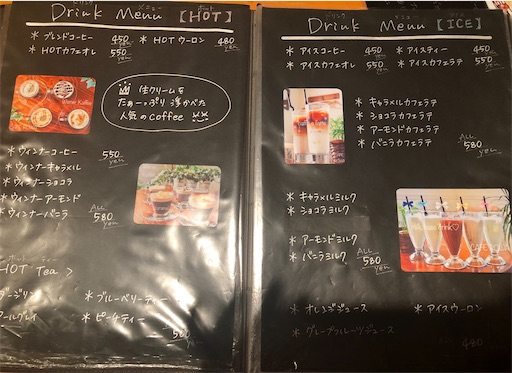 ドリンク メニュー ホット
Drink Menu【HOT】
* ブレンドコーヒー 450 yen
* HOT ウーロン 480 yen
* HOTカフェオレ 550 yen
生クリームを
たぁーっぷり 浮かべた
人気のCoffee
* ウィンナーコーヒー 550 yen
* ウィンナーキャラメル
* ウィンナーショコラ
* ウィンナーアーモンド
* ウィンナーバニラ
ALL 580 yen
HOT Tea >
ダージリン
* ブルーベリーティー
アールグレイ
* ピーチティー
580 yen
ドリンク メニュー
Drink Menu【ICE】
* アイスコーヒー 450 yen
* アイスティー
* アイスカフェオレ
* アイスカフェラテ
* キャラメルカフェラテ
* ショコラカフェラテ
* アーモンドカフェラテ
* バニラカフェラテ
ALL 580 yen
* キャラメルミルク
* ショコラミルク
* アーモンドミルク
* バニラミルク
ALL 580 yen
* オレンジジュース
* アイスウーロン
* グレープフルーツジュース
480